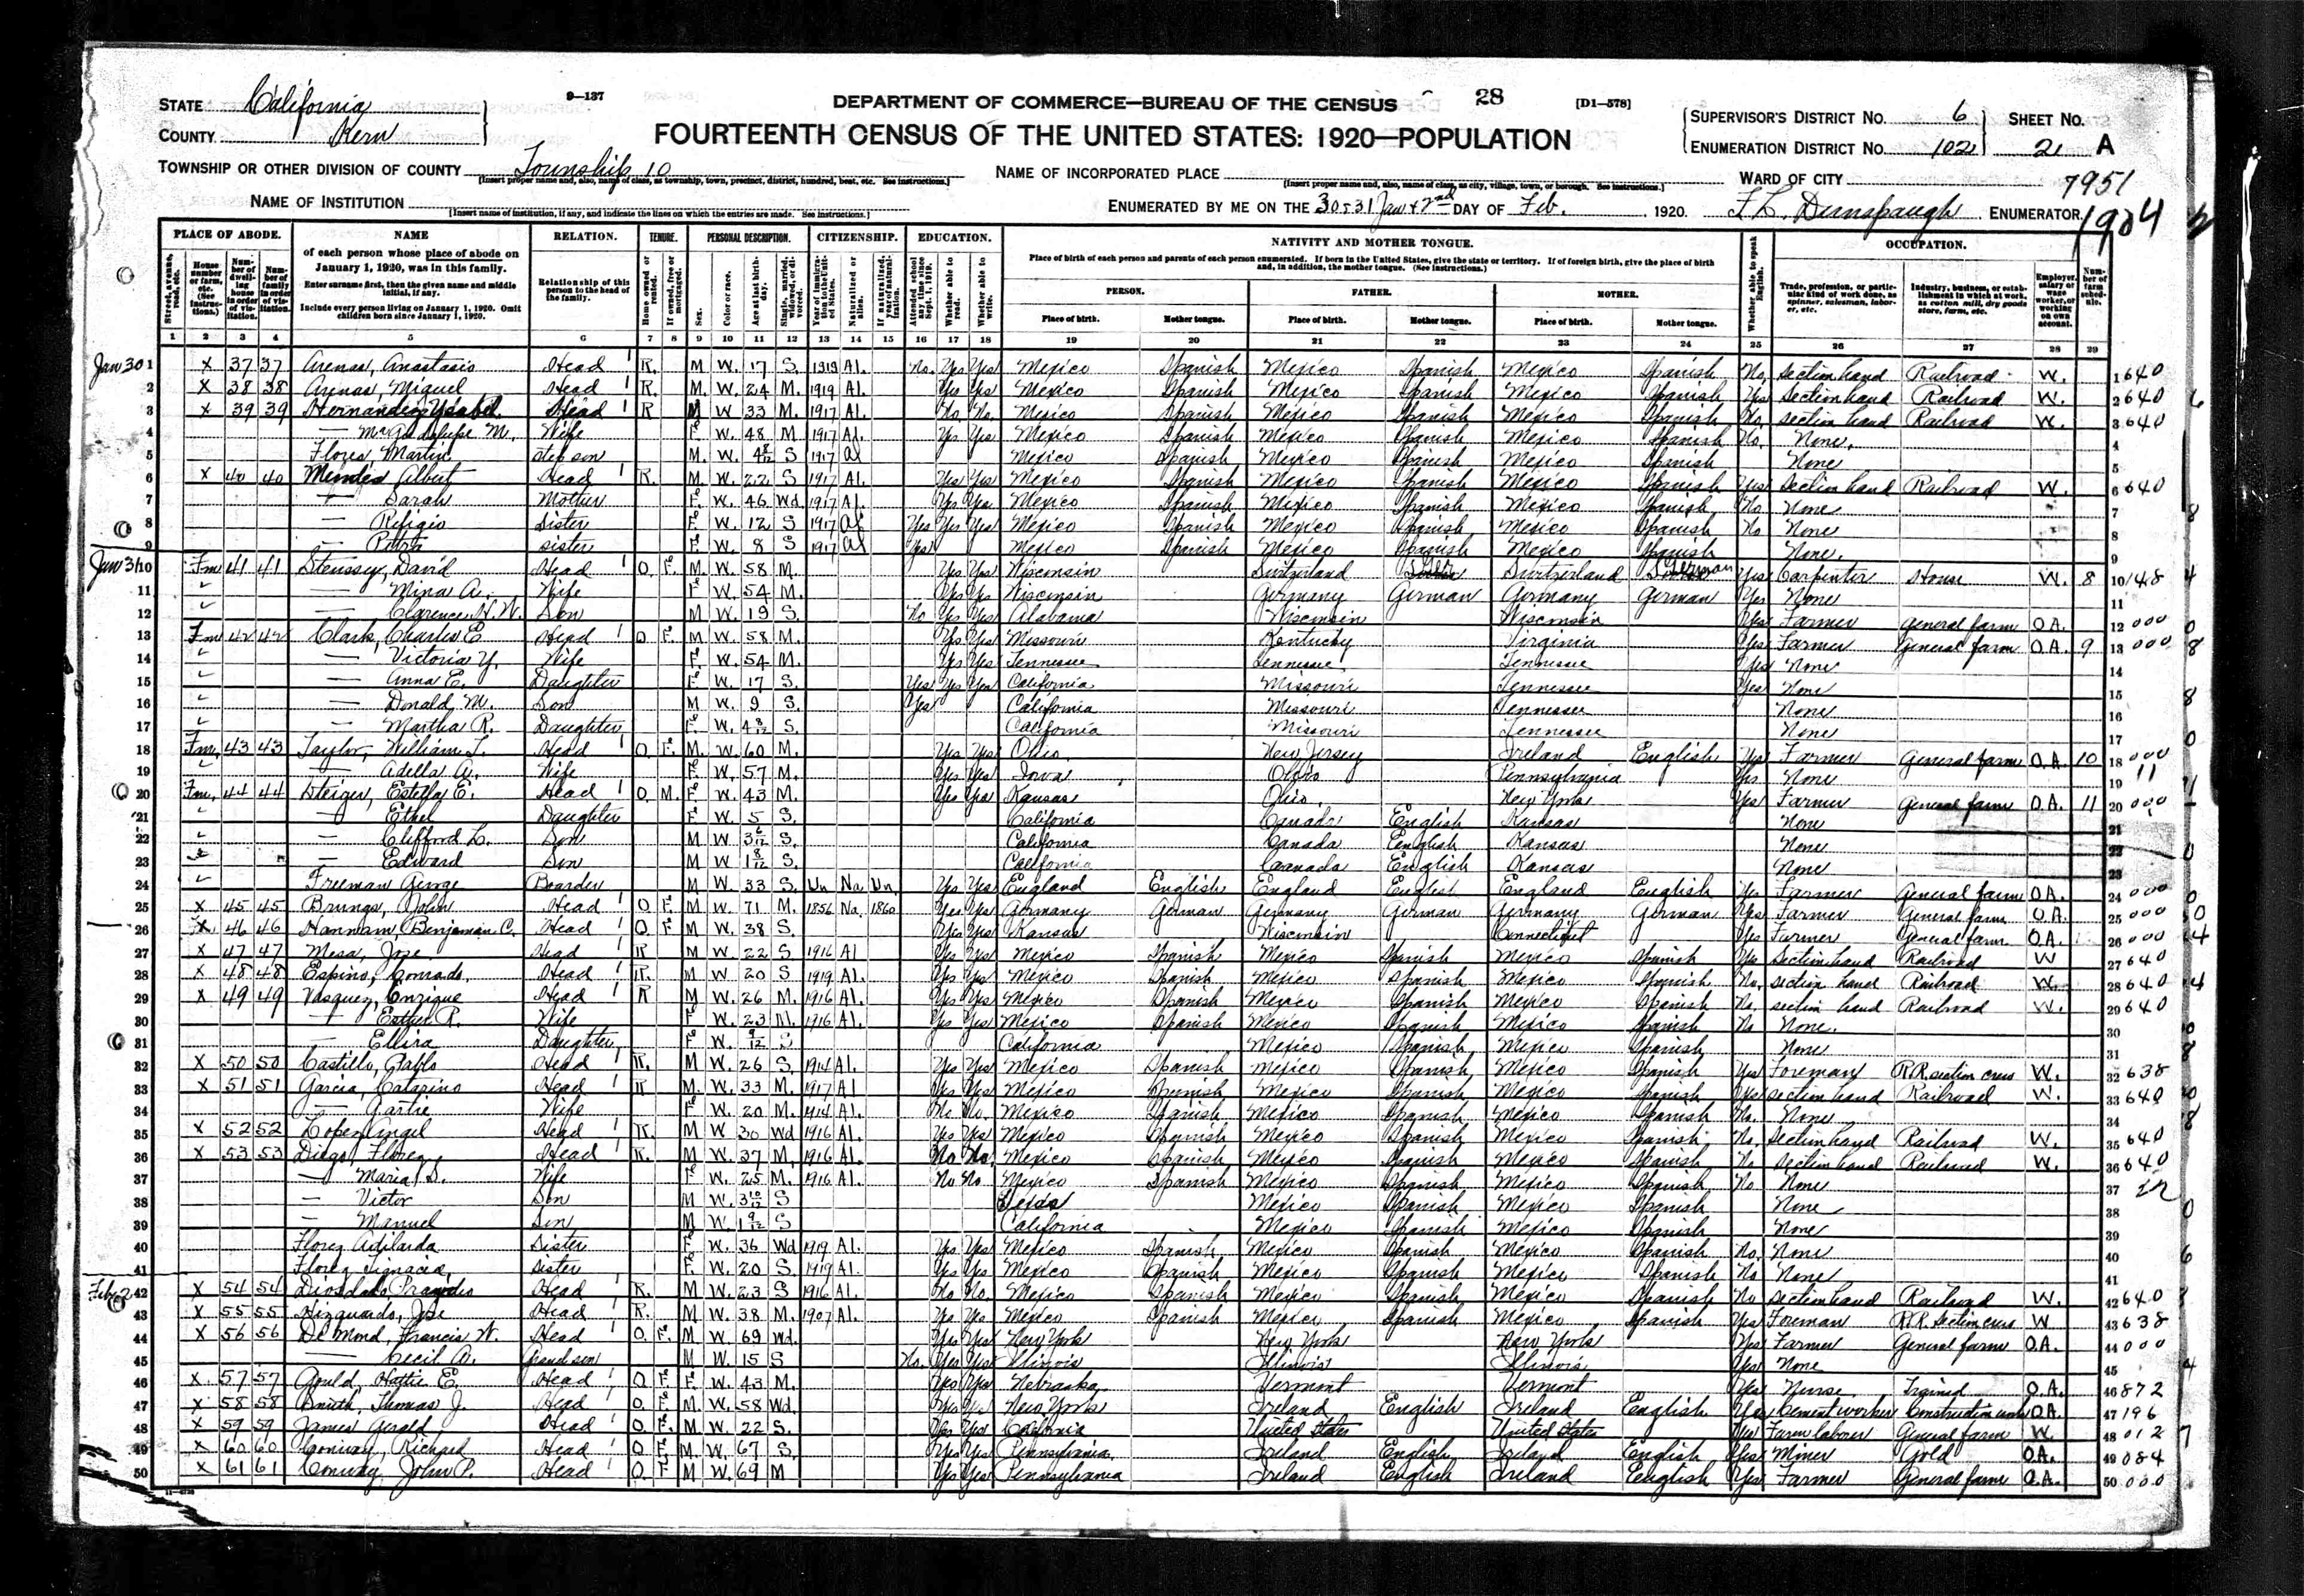 9—137
DEPARTMENT OF COMMERCE—BUREAU OF THE CENSUS 28 [D1—578]
STATE California
COUNTY Kern
FOURTEENTH CENSUS OF THE UNITED STATES: 1920—POPULATION
SUPERVISOR'S DISTRICT No. 6 SHEET No.
ENUMERATION DISTRICT No. 102 2 A
TOWNSHIP OR OTHER DIVISION OF COUNTY Township 10
[Insert proper name and, also, name of class, as township, town, precinct, district, hundred, beat, etc. See instructions.]
NAME OF INCORPORATED PLACE
[Insert proper name and, also, name of class, as city, village, town, or borough. See instructions.]
WARD OF CITY
7951
NAME OF INSTITUTION
[Insert name of institution, if any, and indicate the lines on which the entries are made. See instructions.]
ENUMERATED BY ME ON THE 30 & 31 Jan & 2nd DAY OF Feb., 1920. F. L. Dunspaugh ENUMERATOR
PLACE OF ABODE. NAME RELATION. TENURE. PERSONAL DESCRIPTION. CITIZENSHIP. EDUCATION. NATIVITY AND MOTHER TONGUE. OCCUPATION.
of each person whose place of abode on January 1, 1920, was in this family.
Enter surname first, then the given name and middle initial, if any.
Include every person living on January 1, 1920. Omit children born since January 1, 1920.
Relationship of this person to the head of the family.
Place of birth of each person and parents of each person enumerated. If born in the United States, give the state or territory. If of foreign birth, give the place of birth and, in addition, the mother tongue. (See instructions.)
PERSON. FATHER. MOTHER.
Place of birth. Mother tongue. Place of birth. Mother tongue. Place of birth. Mother tongue.
1 2 3 4 5 6 7 8 9 10 11 12 13 14 15 16 17 18 19 20 21 22 23 24 25 26 27 28 29
Jan 30 1 X 37 37 Arenas, Anastasio Head R. M W. 17 S 1919 Al. No Yes Yes Mexico Spanish Mexico Spanish Mexico Spanish No section hand Railroad W. 1 640
2 X 38 38 Arenas, Miguel Head R. M. W. 24 M. 1919 Al. Yes Yes Mexico Spanish Mexico Spanish Mexico Spanish Yes Section hand Railroad W. 2 640
3 X 39 39 Hernandez, Ysabel Head R M W 33 M. 1917 Al. No No Mexico Spanish Mexico Spanish Mexico Spanish No section hand Railroad W. 3 640
4 — M. Wife F W. 48 M 1917 Al. Yes Yes Mexico Spanish Mexico Spanish Mexico Spanish No. None. 4
5 Flores, Martin step son M. W. 4 8/12 S 1917 al Mexico Spanish Mexico Spanish Mexico Spanish None 5
6 X 40 40 Mendes Albert Head R. M. W. 22 S 1917 Al. Yes Yes Mexico Spanish Mexico Spanish Mexico Spanish Yes Section hand Railroad W. 6 640
7 — Sarah Mother F. W. 46 Wd 1917 Al. Yes Yes Mexico Spanish Mexico Spanish Mexico Spanish No None 7
8 — Refigio Sister F. W. 12 S 1917 Al Yes Yes Yes Mexico Spanish Mexico Spanish Mexico Spanish No None 8
9 — Petra sister F. W. 8 S 1917 al Yes Mexico Spanish Mexico Spanish Mexico Spanish None. 9
Jan 31 10 Fm 41 41 Steussy, David Head O. F. M. W. 58 M. Yes Yes Wisconsin Switzerland Switzerland German Yes Carpenter House W. 8 10 148
11 — Mina A. Wife F W. 54 M. Yes Yes Wisconsin Germany German Germany German Yes None 11
12 — Clarence W. Son M W. 19 S. No Yes Yes Alabama Wisconsin Wisconsin Yes Farmer General farm O.A. 12 000
13 Fm 42 42 Clark, Charles E Head O F. M W. 58 M. Yes Yes Missouri Kentucky Virginia Yes Farmer General farm O.A. 9 13 000
14 — Victoria Y. Wife F. W. 54 M. Yes Yes Tennessee Tennessee Tennessee Yes None 14
15 — Anna E. Daughter F. W. 17 S. Yes Yes Yes California Missouri Tennessee Yes None 15
16 — Donald M. Son M W. 9 S. Yes California Missouri Tennessee None 16
17 — Martha R. Daughter F. W. 4 8/12 S. California Missouri Tennessee None 17
18 Fm. 43 43 Taylor, William T. Head O F. M. W. 60 M. Yes Yes Ohio New Jersey Ireland English Yes Farmer General farm O.A. 10 18 000
19 — Adella A. Wife F. W. 57 M. Yes Yes Iowa Ohio Pennsylvania Yes None 19
20 Fm. 44 44 Steiger, Estella E. Head O. M. F. W. 43 M. Yes Yes Kansas Ohio New York Yes Farmer General farm O.A. 11 20 000
21 — Ethel Daughter F W. 5 S. California Canada English Kansas None 21
22 — Clifford L. Son M W. 3 6/12 S. California Canada English Kansas None 22
23 — Edward Son M W 1 8/12 S. California Canada English Kansas None 23
24 Freeman George Boarder M W. 33 S. Un Na Un. Yes Yes England English England English England English Yes Farmer General farm O.A. 24 000
25 X 45 45 Brungs, John Head O F. M W. 71 M. 1856 Na. 1860 Yes Yes Germany German Germany German Germany German Yes Farmer General farm O.A. 25 000
26 X 46 46 Hannam, Benjaman C. Head O. F M W. 38 S. Yes Yes Kansas Wisconsin Connecticut Yes Farmer General farm O.A. 26 000
27 X 47 47 Mesa, Jose Head R M W. 22 S 1916 Al Yes Yes Mexico Spanish Mexico Spanish Mexico Spanish Yes section hand Railroad W 27 640
28 X 48 48 Espino, Conrado, Head R. M W. 20 S 1919 Al. Yes Yes Mexico Spanish Mexico Spanish Mexico Spanish No. section hand Railroad W. 28 640
29 X 49 49 Vasquez, Enrique Head R M W. 26 M. 1916 Al. Yes Yes Mexico Spanish Mexico Spanish Mexico Spanish No. section hand Railroad W. 29 640
30 — Esther R. Wife F W. 23 M. 1916 Al. Yes Yes Mexico Spanish Mexico Spanish Mexico Spanish No None. 30
31 — Ellira Daughter F W. 9/12 S California Mexico Spanish Mexico Spanish None 31
32 X 50 50 Castillo, Pablo Head R. M W. 26 S 1914 Al. Yes Yes Mexico Spanish Mexico Spanish Mexico Spanish Yes Foreman R.R. section crew W. 32 638
33 X 51 51 Garcia, Catarino Head R M. W. 33 M. 1917 Al Yes Yes Mexico Spanish Mexico Spanish Mexico Spanish Yes section hand Railroad W. 33 640
34 — Wife F W. 20 M. 1914 Al. No No. Mexico Spanish Mexico Spanish Mexico Spanish No. None 34
35 X 52 52 Lopez Angel Head R. M W 30 Wd 1916 Al. Yes Yes Mexico Spanish Mexico Spanish Mexico Spanish No. Section hand Railroad W. 35 640
36 X 53 53 Diego, Florez Head R. M W. 37 M, 1916 Al. No No. Mexico Spanish Mexico Spanish Mexico Spanish No section hand Railroad W. 36 640
37 — Maria D. Wife F W. 25 M. 1916 Al. No No Mexico Spanish Mexico Spanish Mexico Spanish No None 37
38 — Victor Son M W. 3 10/12 S Texas Mexico Spanish Mexico Spanish None 38
39 — Manuel Son M W. 1 9/12 S California Mexico Spanish Mexico Spanish None 39
40 Florez Adilaida Sister F W. 36 Wd 1919 Al. Yes Yes Mexico Spanish Mexico Spanish Mexico Spanish No. None 40
41 Florez Ignacia, sister F. W. 20 S. 1919 Al. Yes Yes Mexico Spanish Mexico Spanish Mexico Spanish No None 41
Feb. 2 42 X 54 54 Head R. M W. 23 S 1916 Al. No No. Mexico Spanish Mexico Spanish Mexico Spanish No section hand Railroad W. 42 640
43 X 55 55 Jose Head R. M W. 38 M. 1907 Al. Yes Yes Mexico Spanish Mexico Spanish Mexico Spanish Yes Foreman R.R. Section crew W 43 638
44 X 56 56 De Mond, Francis W. Head O. F. M W. 69 Wd. Yes Yes New York New York New York Yes Farmer General farm O.A. 44 000
45 — Cecil A. Grand son M W. 15 S No. Yes Yes Illinois Illinois Illinois Yes None 45
46 X 57 57 Gould, Hattie E. Head O F. F. W. 43 M. Yes Yes Nebraska Vermont Vermont Yes Nurse Trained O.A. 46 872
47 X 58 58 Thomas J. Head O. F. M W. 58 Wd. Yes Yes New York Ireland English Ireland English Yes Cement worker Construction work O.A. 47 196
48 X 59 59 James Gerald Head O. F. M W. 22 S. Yes Yes California United States United States Yes Farm laborer General farm W. 48 012
49 X 60 60 Conway, Richard Head O F. M. W. 67 S. Yes Yes Pennsylvania Ireland English Ireland English Yes Miner Gold O.A. 49 084
50 X 61 61 Conway, John P. Head O. F M W. 69 M Yes Yes Pennsylvania Ireland English Ireland English Yes Farmer General farm O.A. 50 000